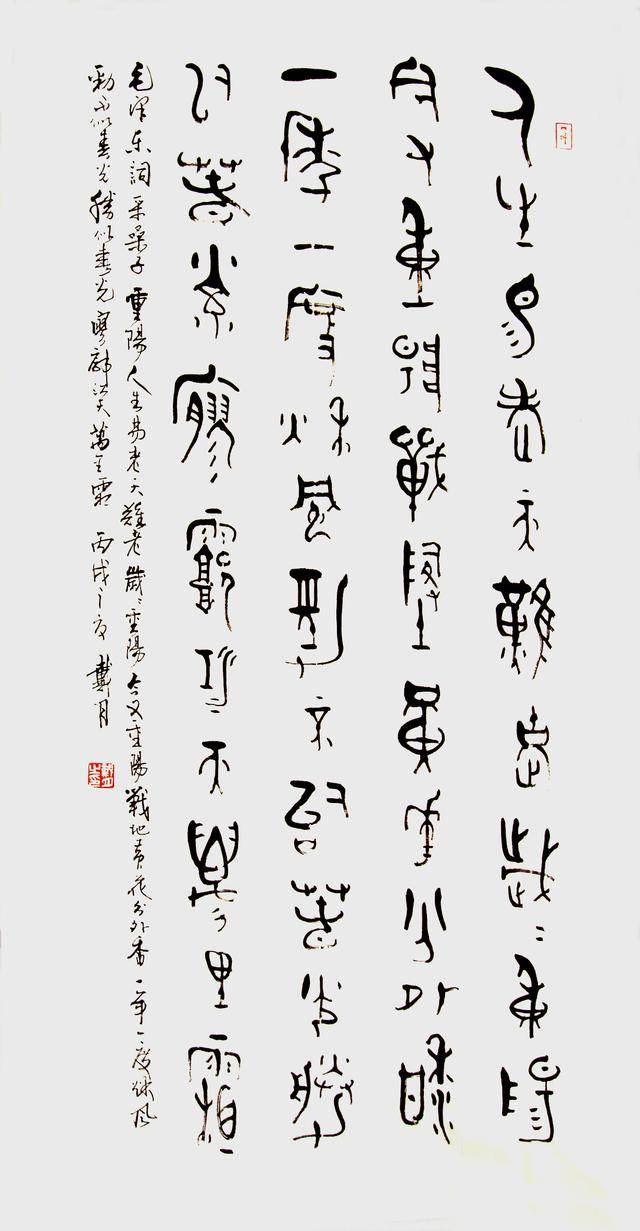 人生易老天難老歲〻重陽
今又重陽戰地黃花分外香
一年一度秋風勁不似春光勝
似春光寥廓江天萬里霜
毛澤東詞采桑子重陽人生易老天難老歲〻重陽今又重陽戰地黃花分外香一年一度秋風
勁不似春光勝似春光寥廓江天萬里霜 丙戌之夏 戴月